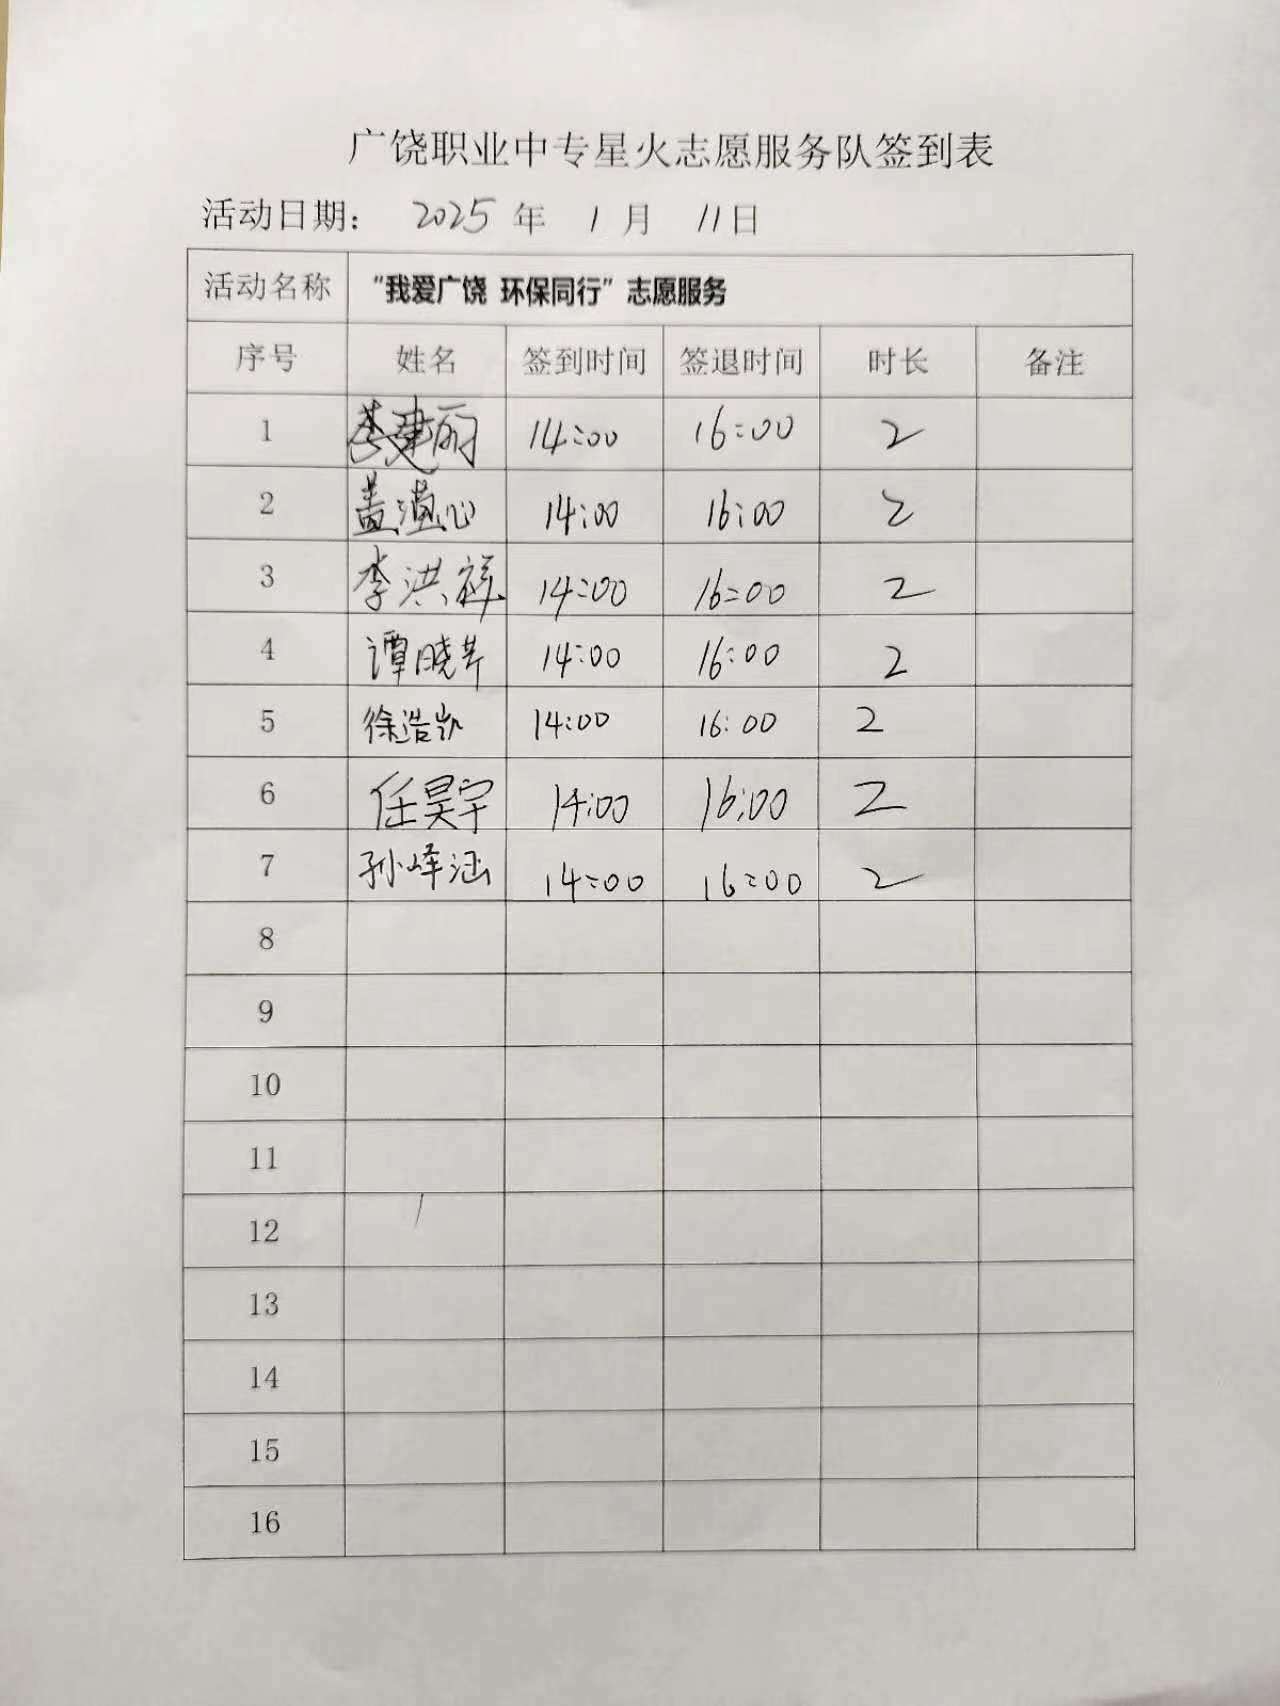 广饶职业中专星火志愿服务队签到表
活动日期： 2025 年 1 月 11日
活动名称 “我爱广饶 环保同行”志愿服务
序号 姓名 签到时间 签退时间 时长 备注
1 建丽 14:00 16:00 2
2 盖 心 14:00 16:00 2
3 李洪祥 14:00 16:00 2
4 谭晓芹 14:00 16:00 2
5 徐浩凯 14:00 16:00 2
6 任昊宇 14:00 16:00 2
7 孙峰涵 14:00 16:00 2
8
9
10
11
12
13
14
15
16